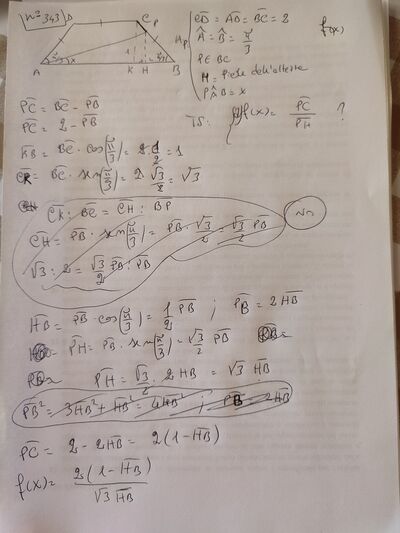 n° 343)
D C P
A K H B
x
CD = AD = BC = 2
Â = B̂ = π/3
P ∈ BC
H = Piede dell'altezza
PÂB = x
f(x)
TS: f(x) = PC/PH ?
PC = BC - PB
PC = 2 - PB
KB = BC · cos(π/3) = 2 1/2 = 1
CK = BC · sen(π/3) = 2 √3/2 = √3
CK : BC = CH : BP
CH = PB · sen(π/3) = PB · √3/2 = √3/2 PB
No
√3 : 2 = √3/2 PB : PB
HB = PB · cos(π/3) = 1/2 PB ; PB = 2HB
PH = PB · sen(π/3) = √3/2 PB
PH = √3/2 · 2HB = √3 HB
PB² = 3HB² + HB² = 4HB² ; PB = 2HB
PC = 2 - 2HB = 2(1 - HB)
f(x) = 2(1 - HB)/√3 HB